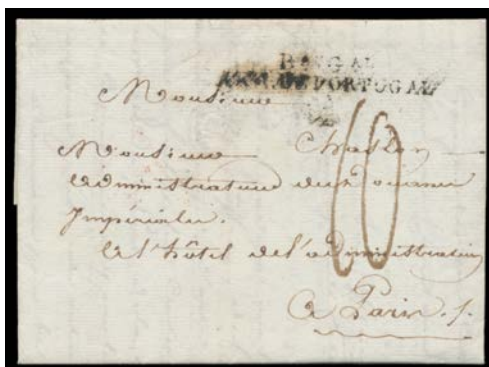 BAU GAL
ARM. DE PORTUGAL
Monsieur
Monsieur Chaslon
administrateur des Douanes
Impériales.
à l'hôtel de l'administration
à Paris.
10